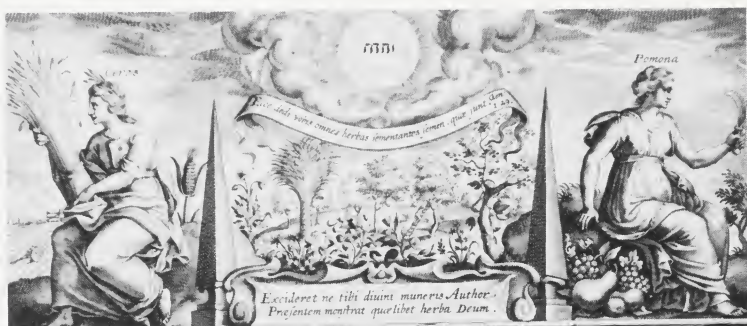 Ceres
Pomona
Ecce dedi vobis omnes herbas sementantes semen, quæ sunt Gen
1. 29.
Excideret ne tibi diuini muneris Author
Præsentem monstrat quælibet herba Deum.